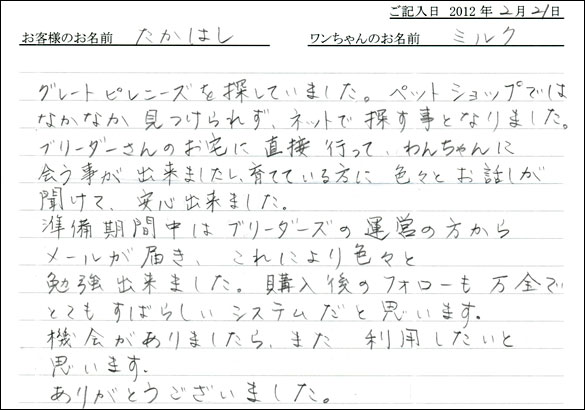 ご記入日 2012 年 2 月 21 日
お客様のお名前 たかはし ワンちゃんのお名前 ミルク
グレートピレニーズを探していました。ペットショップでは
なかなか見つけられず、ネットで探す事となりました。
ブリーダーさんのお宅に直接行って、わんちゃんに
会う事が出来ましたし、育てている方に色々とお話しが
聞けて、安心出来ました。
準備期間中はブリーダーズの運営の方から
メールが届き、これにより色々と
勉強出来ました。購入後のフォローも万全で
とてもすばらしいシステムだと思います。
機会がありましたら、また利用したいと
思います。
ありがとうございました。